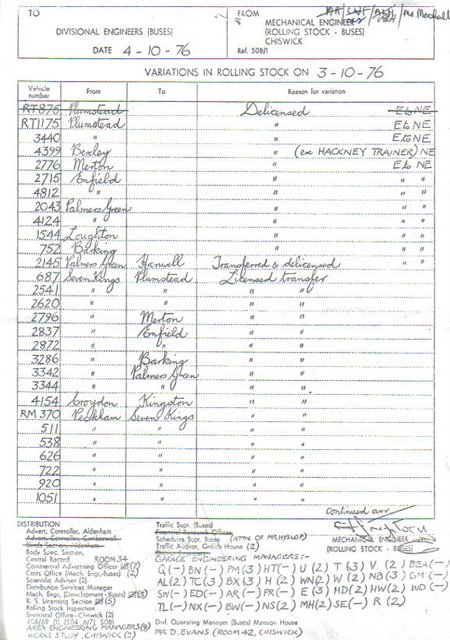 TO
FROM
MR/SWF/ /Mr Marshall
DIVISIONAL ENGINEERS (BUSES)
MECHANICAL ENGINEER
(ROLLING STOCK - BUSES)
CHISWICK
DATE 4-10-76
Ref. 508/1
VARIATIONS IN ROLLING STOCK ON 3-10-76
Vehicle number From To Reason for variation
RT876 Plumstead Delicensed E to NE
RT1175 Plumstead " E to NE
3440 " " E to NE
4399 Bexley " (ex HACKNEY TRAINER) NE
2776 Merton " E to NE
2715 Enfield " " "
4812 " " " "
2043 Palmers Green " " "
4124 " " " "
1544 Loughton " " "
752 Barking " " "
2145 Palmers Green Hanwell Transferred & delicensed " "
687 Seven Kings Plumstead Licensed transfer
2541 " " " "
2620 " " " "
2796 " Merton " "
2837 " Enfield " "
2872 " " " "
3286 " Barking " "
3342 " Palmers Green " "
3344 " " " "
4154 Croydon Kingston " "
RM 370 Peckham Seven Kings " "
511 " " " "
538 " " " "
626 " " " "
722 " " " "
920 " " " "
1051 " " " "
Continued over
DISTRIBUTION
Advert. Controller, Aldenham
Advert. Controller, Camberwell
Body Spec. Section,
Central Record ROOM 34
Commercial Advertising Office (7)
Costs Office (Mech. Engr.-Buses) (2)
Scientific Adviser (2)
Distribution Services Manager
Mech. Engr. (Development - Buses) (3)
R. S. Licensing Section (5)
Rolling Stock Inspection
Technical Office - Chiswick (2)
408/69 (1) 504 (1) 508/1
AREA ENGINEERING MANAGERS(9)
WORKS STUDY, CHISWICK (2)
Traffic Supt. (Buses)
Financial Research Officer
Scheduling Supt. Buses (ATTN OF MR HYSLOP)
Traffic Auditor, Griffith House (2)
MECHANICAL ENGINEER
(ROLLING STOCK - BUSES)
GARAGE ENGINEERING MANAGERS:-
BN(-) PM(3) HT(-) U(2) T(3) V(2) BEA(-)
AL(2) TC(3) BX(3) H(2) WN(2) W(2) NB(3) GM(-)
SW(-) ED(-) AR(-) PR(-) E(3) HD(2) HW(2) WD(-)
TL(-) NX(-) BW(-) NS(2) MH(2) SE(-) R(2)
Divl. Operating Manager (Buses) Mansion House
MR D. EVANS (ROOM 42, CHISWICK)